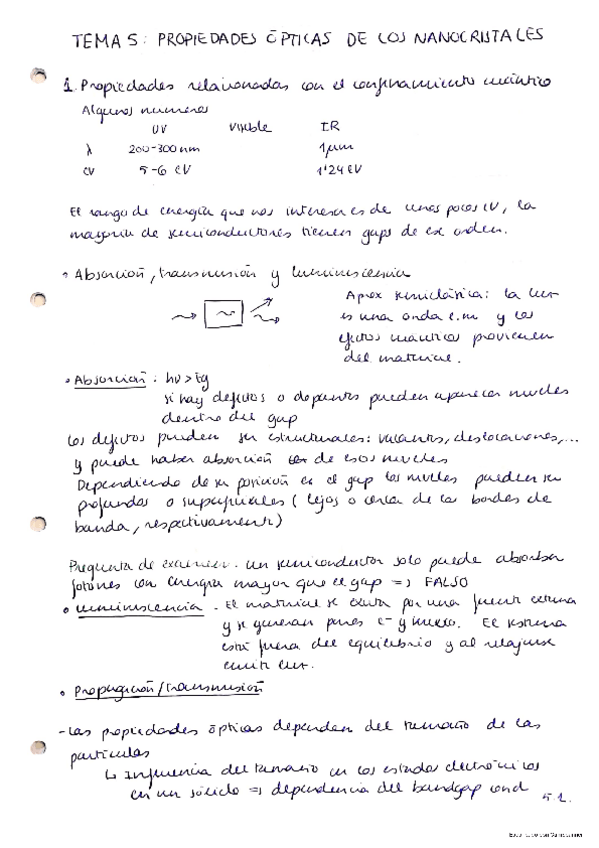 TEMA 5: PROPIEDADES ÓPTICAS DE LOS NANOCRISTALES
1. Propiedades relacionadas con el confinamiento cuántico
Algunos numeros
UV Visible IR
λ 200-300 nm 1μm
eV 5-6 eV 1'24 eV
El rango de energía que nos interesa es de unos pocos eV, la
mayoria de semiconductores tienen gaps de ese orden.
Absorción, transmisión y luminiscencia
Aprox semiclásica: la luz
es una onda e.m y los
efectos cuánticos provienen
del material.
Absorción: hν > Eg
si hay defectos o dopantes pueden aparecer niveles
dentro del gap
Los defectos pueden ser estructurales: vacantes, dislocaciones,...
y puede haber absorción de esos niveles
Dependiendo de su posición en el gap los niveles pueden ser
profundos o superficiales (lejos o cerca de los bordes de
banda, respectivamente)
Pregunta de examen: un semiconductor solo puede absorber
fotones con energía mayor que el gap => FALSO
Luminiscencia. El material se excita por una fuente externa
y se generan pares e- y hueco. El sistema
está fuera del equilibrio y al relajarse
emite luz.
Propagación/transmisión
- Las propiedades ópticas dependen del tamaño de las
partículas
↳ Influencia del tamaño en los estados electrónicos
en un sólido => dependencia del bandgap con d
5.1.